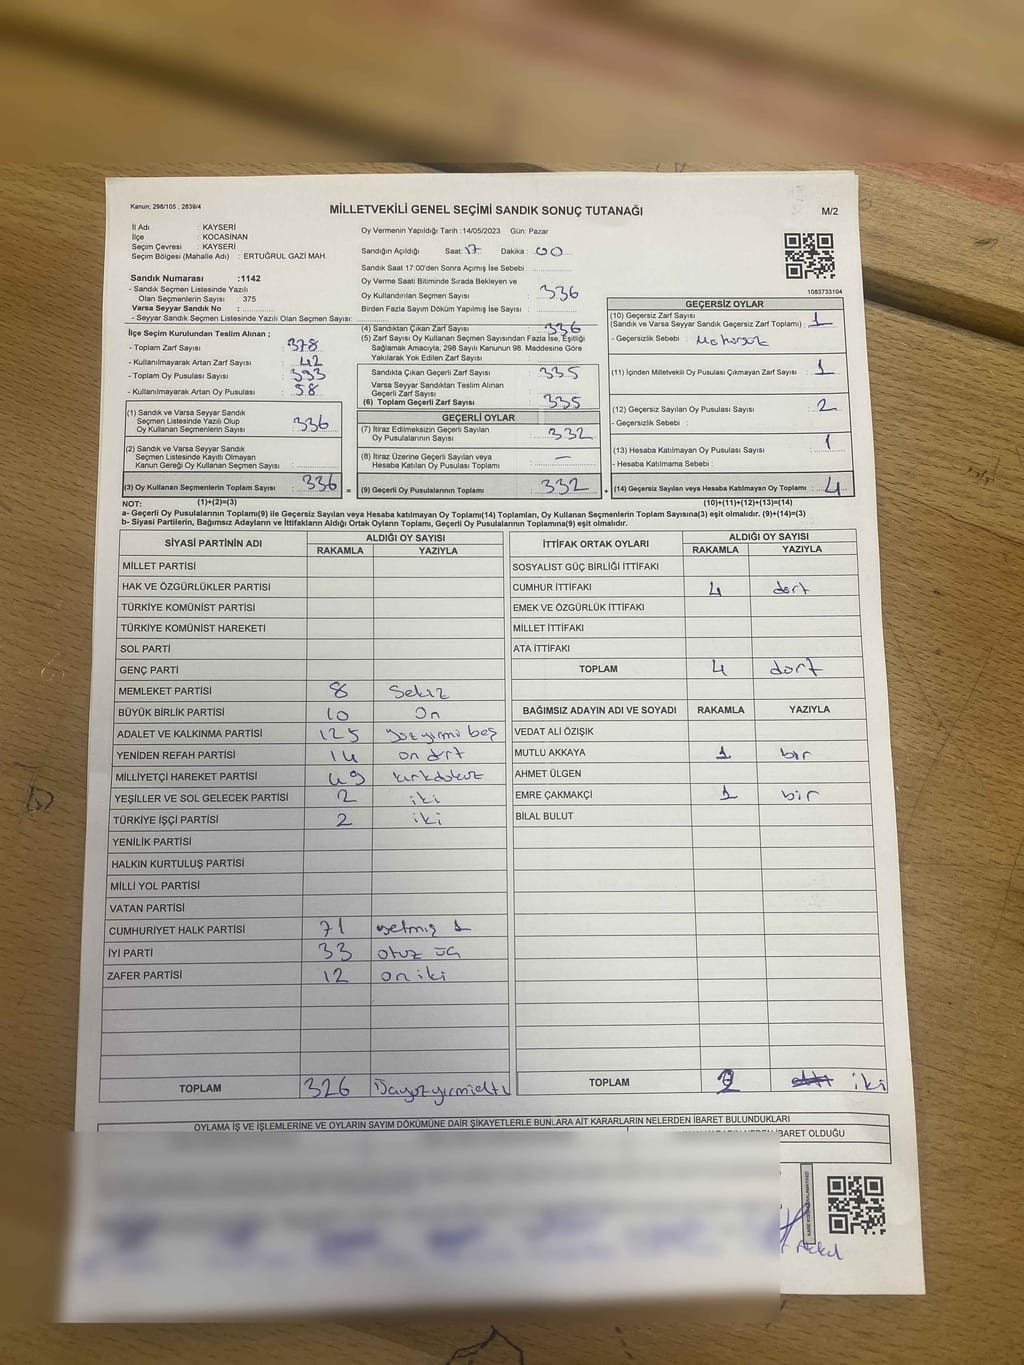 Kanun; 298/105 , 2839/4
MİLLETVEKİLİ GENEL SEÇİMİ SANDIK SONUÇ TUTANAĞI
M/2
İl Adı : KAYSERİ
İlçe : KOCASİNAN
Seçim Çevresi : KAYSERİ
Seçim Bölgesi (Mahalle Adı) : ERTUĞRUL GAZİ MAH.
Sandık Numarası :1142
- Sandık Seçmen Listesinde Yazılı
Olan Seçmenlerin Sayısı : 375
Varsa Seyyar Sandık No :
- Seyyar Sandık Seçmen Listesinde Yazılı Olan Seçmen Sayısı:
İlçe Seçim Kurulundan Teslim Alınan ;
- Toplam Zarf Sayısı : 378
- Kullanılmayarak Artan Zarf Sayısı : 42
- Toplam Oy Pusulası Sayısı : 393
- Kullanılmayarak Artan Oy Pusulası : 58
(1) Sandık ve Varsa Seyyar Sandık
Seçmen Listesinde Yazılı Olup
Oy Kullanan Seçmenlerin Sayısı : 336
(2) Sandık ve Varsa Seyyar Sandık
Seçmen Listesinde Kayıtlı Olmayan
Kanun Gereği Oy Kullanan Seçmen Sayısı :
(3) Oy Kullanan Seçmenlerin Toplam Sayısı : 336 =
Oy Vermenin Yapıldığı Tarih :14/05/2023 Gün: Pazar
Sandığın Açıldığı Saat: 17 Dakika: 00
Sandık Saat 17:00'den Sonra Açımış İse Sebebi :
Oy Verme Saati Bitiminde Sırada Bekleyen ve
Oy Kullandırılan Seçmen Sayısı : 336
Birden Fazla Sayım Döküm Yapılmış İse Sayısı :
(4) Sandıktan Çıkan Zarf Sayısı : 336
(5) Zarf Sayısı Oy Kullanan Seçmen Sayısından Fazla İse, Eşitliği
Sağlamak Amacıyla, 298 Sayılı Kanunun 98. Maddesine Göre
Yakılarak Yok Edilen Zarf Sayısı :
Sandıkta Çıkan Geçerli Zarf Sayısı : 335
Varsa Seyyar Sandıktan Teslim Alınan
Geçerli Zarf Sayısı :
(6) Toplam Geçerli Zarf Sayısı : 335
GEÇERLİ OYLAR
(7) İtiraz Edilmeksizin Geçerli Sayılan
Oy Pusulalarının Sayısı : 332
(8) İtiraz Üzerine Geçerli Sayılan veya
Hesaba Katılan Oy Pusulası Toplamı : —
(9) Geçerli Oy Pusulalarının Toplamı : 332 +
1083733104
GEÇERSİZ OYLAR
(10) Geçersiz Zarf Sayısı
(Sandık ve Varsa Seyyar Sandık Geçersiz Zarf Toplamı) : 1
- Geçersizlik Sebebi : Mühürsüz
(11) İçinden Milletvekili Oy Pusulası Çıkmayan Zarf Sayısı : 1
(12) Geçersiz Sayılan Oy Pusulası Sayısı : 2
- Geçersizlik Sebebi :
(13) Hesaba Katılmayan Oy Pusulası Sayısı : 1
- Hesaba Katılmama Sebebi :
(14) Geçersiz Sayılan veya Hesaba Katılmayan Oy Toplamı : 4
NOT: (1)+(2)=(3) (10)+(11)+(12)+(13)=(14)
a- Geçerli Oy Pusulalarının Toplamı(9) ile Geçersiz Sayılan veya Hesaba katılmayan Oy Toplamı(14) Toplamları, Oy Kullanan Seçmenlerin Toplam Sayısına(3) eşit olmalıdır. (9)+(14)=(3)
b- Siyasi Partilerin, Bağımsız Adayların ve İttifakların Aldığı Ortak Oyların Toplamı, Geçerli Oy Pusulalarının Toplamına(9) eşit olmalıdır.
SİYASİ PARTİNİN ADI ALDIĞI OY SAYISI
RAKAMLA YAZIYLA
MİLLET PARTİSİ
HAK VE ÖZGÜRLÜKLER PARTİSİ
TÜRKİYE KOMÜNİST PARTİSİ
TÜRKİYE KOMÜNİST HAREKETİ
SOL PARTİ
GENÇ PARTİ
MEMLEKET PARTİSİ 8 Sekiz
BÜYÜK BİRLİK PARTİSİ 10 On
ADALET VE KALKINMA PARTİSİ 125 yüz yirmi beş
YENİDEN REFAH PARTİSİ 14 on dört
MİLLİYETÇİ HAREKET PARTİSİ 49 kırkdokuz
YEŞİLLER VE SOL GELECEK PARTİSİ 2 iki
TÜRKİYE İŞÇİ PARTİSİ 2 iki
YENİLİK PARTİSİ
HALKIN KURTULUŞ PARTİSİ
MİLLİ YOL PARTİSİ
VATAN PARTİSİ
CUMHURİYET HALK PARTİSİ 71 yetmiş 1
İYİ PARTİ 33 otuz üç
ZAFER PARTİSİ 12 on iki
TOPLAM 326 üçyüzyirmialtı
İTTİFAK ORTAK OYLARI ALDIĞI OY SAYISI
RAKAMLA YAZIYLA
SOSYALİST GÜÇ BİRLİĞİ İTTİFAKI
CUMHUR İTTİFAKI 4 dört
EMEK VE ÖZGÜRLÜK İTTİFAKI
MİLLET İTTİFAKI
ATA İTTİFAKI
TOPLAM 4 dört
BAĞIMSIZ ADAYIN ADI VE SOYADI RAKAMLA YAZIYLA
VEDAT ALİ ÖZIŞIK
MUTLU AKKAYA 1 bir
AHMET ÜLGEN
EMRE ÇAKMAKÇİ 1 bir
BİLAL BULUT
TOPLAM 2 iki
OYLAMA İŞ VE İŞLEMLERİNE VE OYLARIN SAYIM DÖKÜMÜNE DAİR ŞİKAYETLERLE BUNLARA AİT KARARLARIN NELERDEN İBARET BULUNDUKLARI
İBARET OLDUĞU